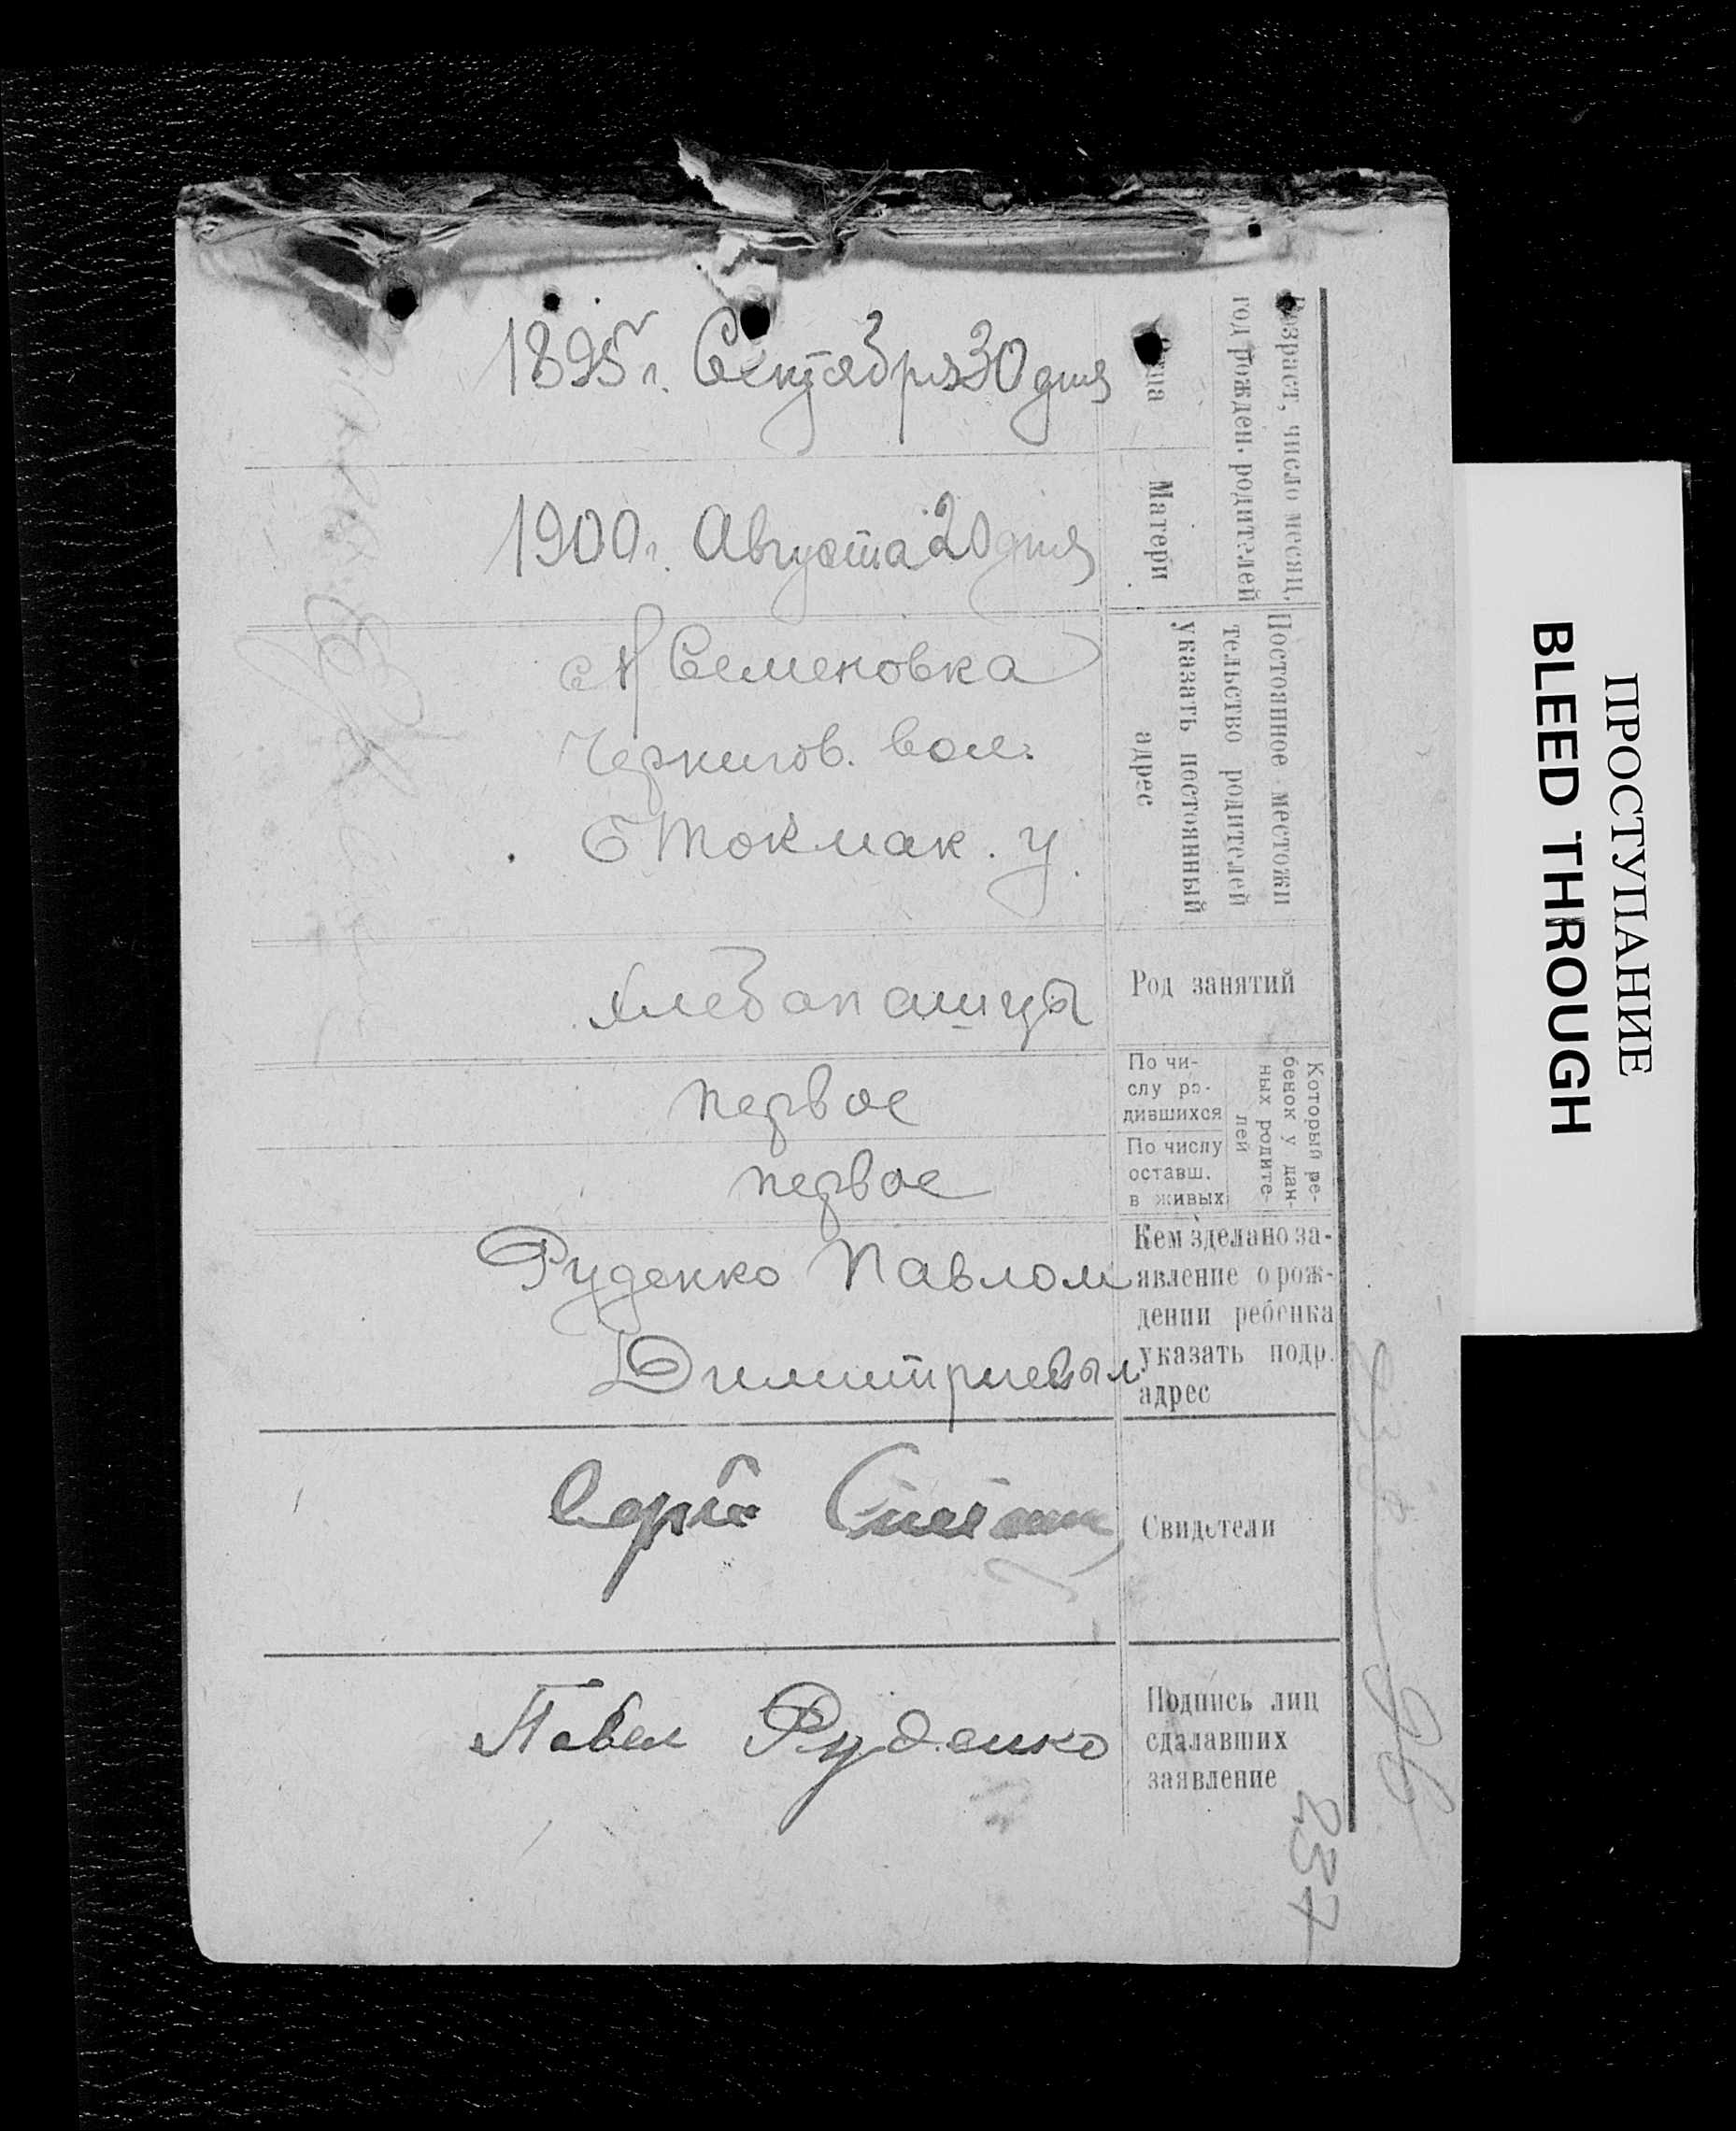 Возраст, число месяц,
год рожден. родителей
Отца
1895 г. Сентября 30 дня
Матери
1900 г. Августа 20 дня
Постоянное местожи
тельство родителей
указать постоянный
адрес
с Н Семеновка
Чернигов. вол.
Б Токмак. у.
Род занятий
хлебопашцы
Который ре-
бенок у дан-
ных родите-
лей
По чи-
слу ро-
дившихся
первое
По числу
оставш.
в живых
первое
Кем зделано за-
явление о рож-
дении ребенка
указать подр.
адрес
Руденко Павлом
Димитриевым
Свидетели
Подпись лиц
сдалавших
заявление
Павел Руденко
237
ПРОСТУПАНИЕ
BLEED THROUGH